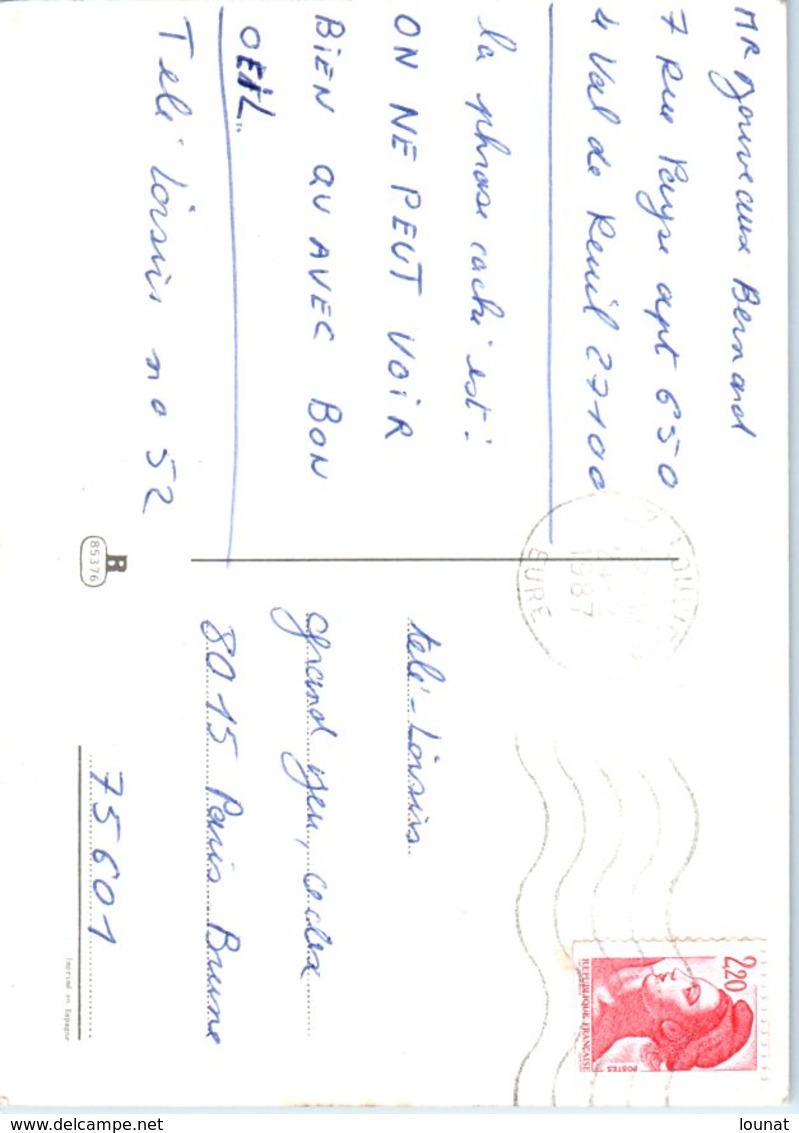 MR Jouveaux Bernard
7 Rue Payse apt 650
4 Val de Reuil 27100
la phrase caché est :
ON NE PEUT VOIR
BIEN QU AVEC BON
OEIL.
Télé Loisirs no 52
B
85376
télé-Loisirs
grand jeu, cedex
8015 Paris Brune
75601
1987
EURE
2,20
REPUBLIQUE FRANÇAISE
POSTES
Imprimé en Espagne
www.delcampe.net
lounat